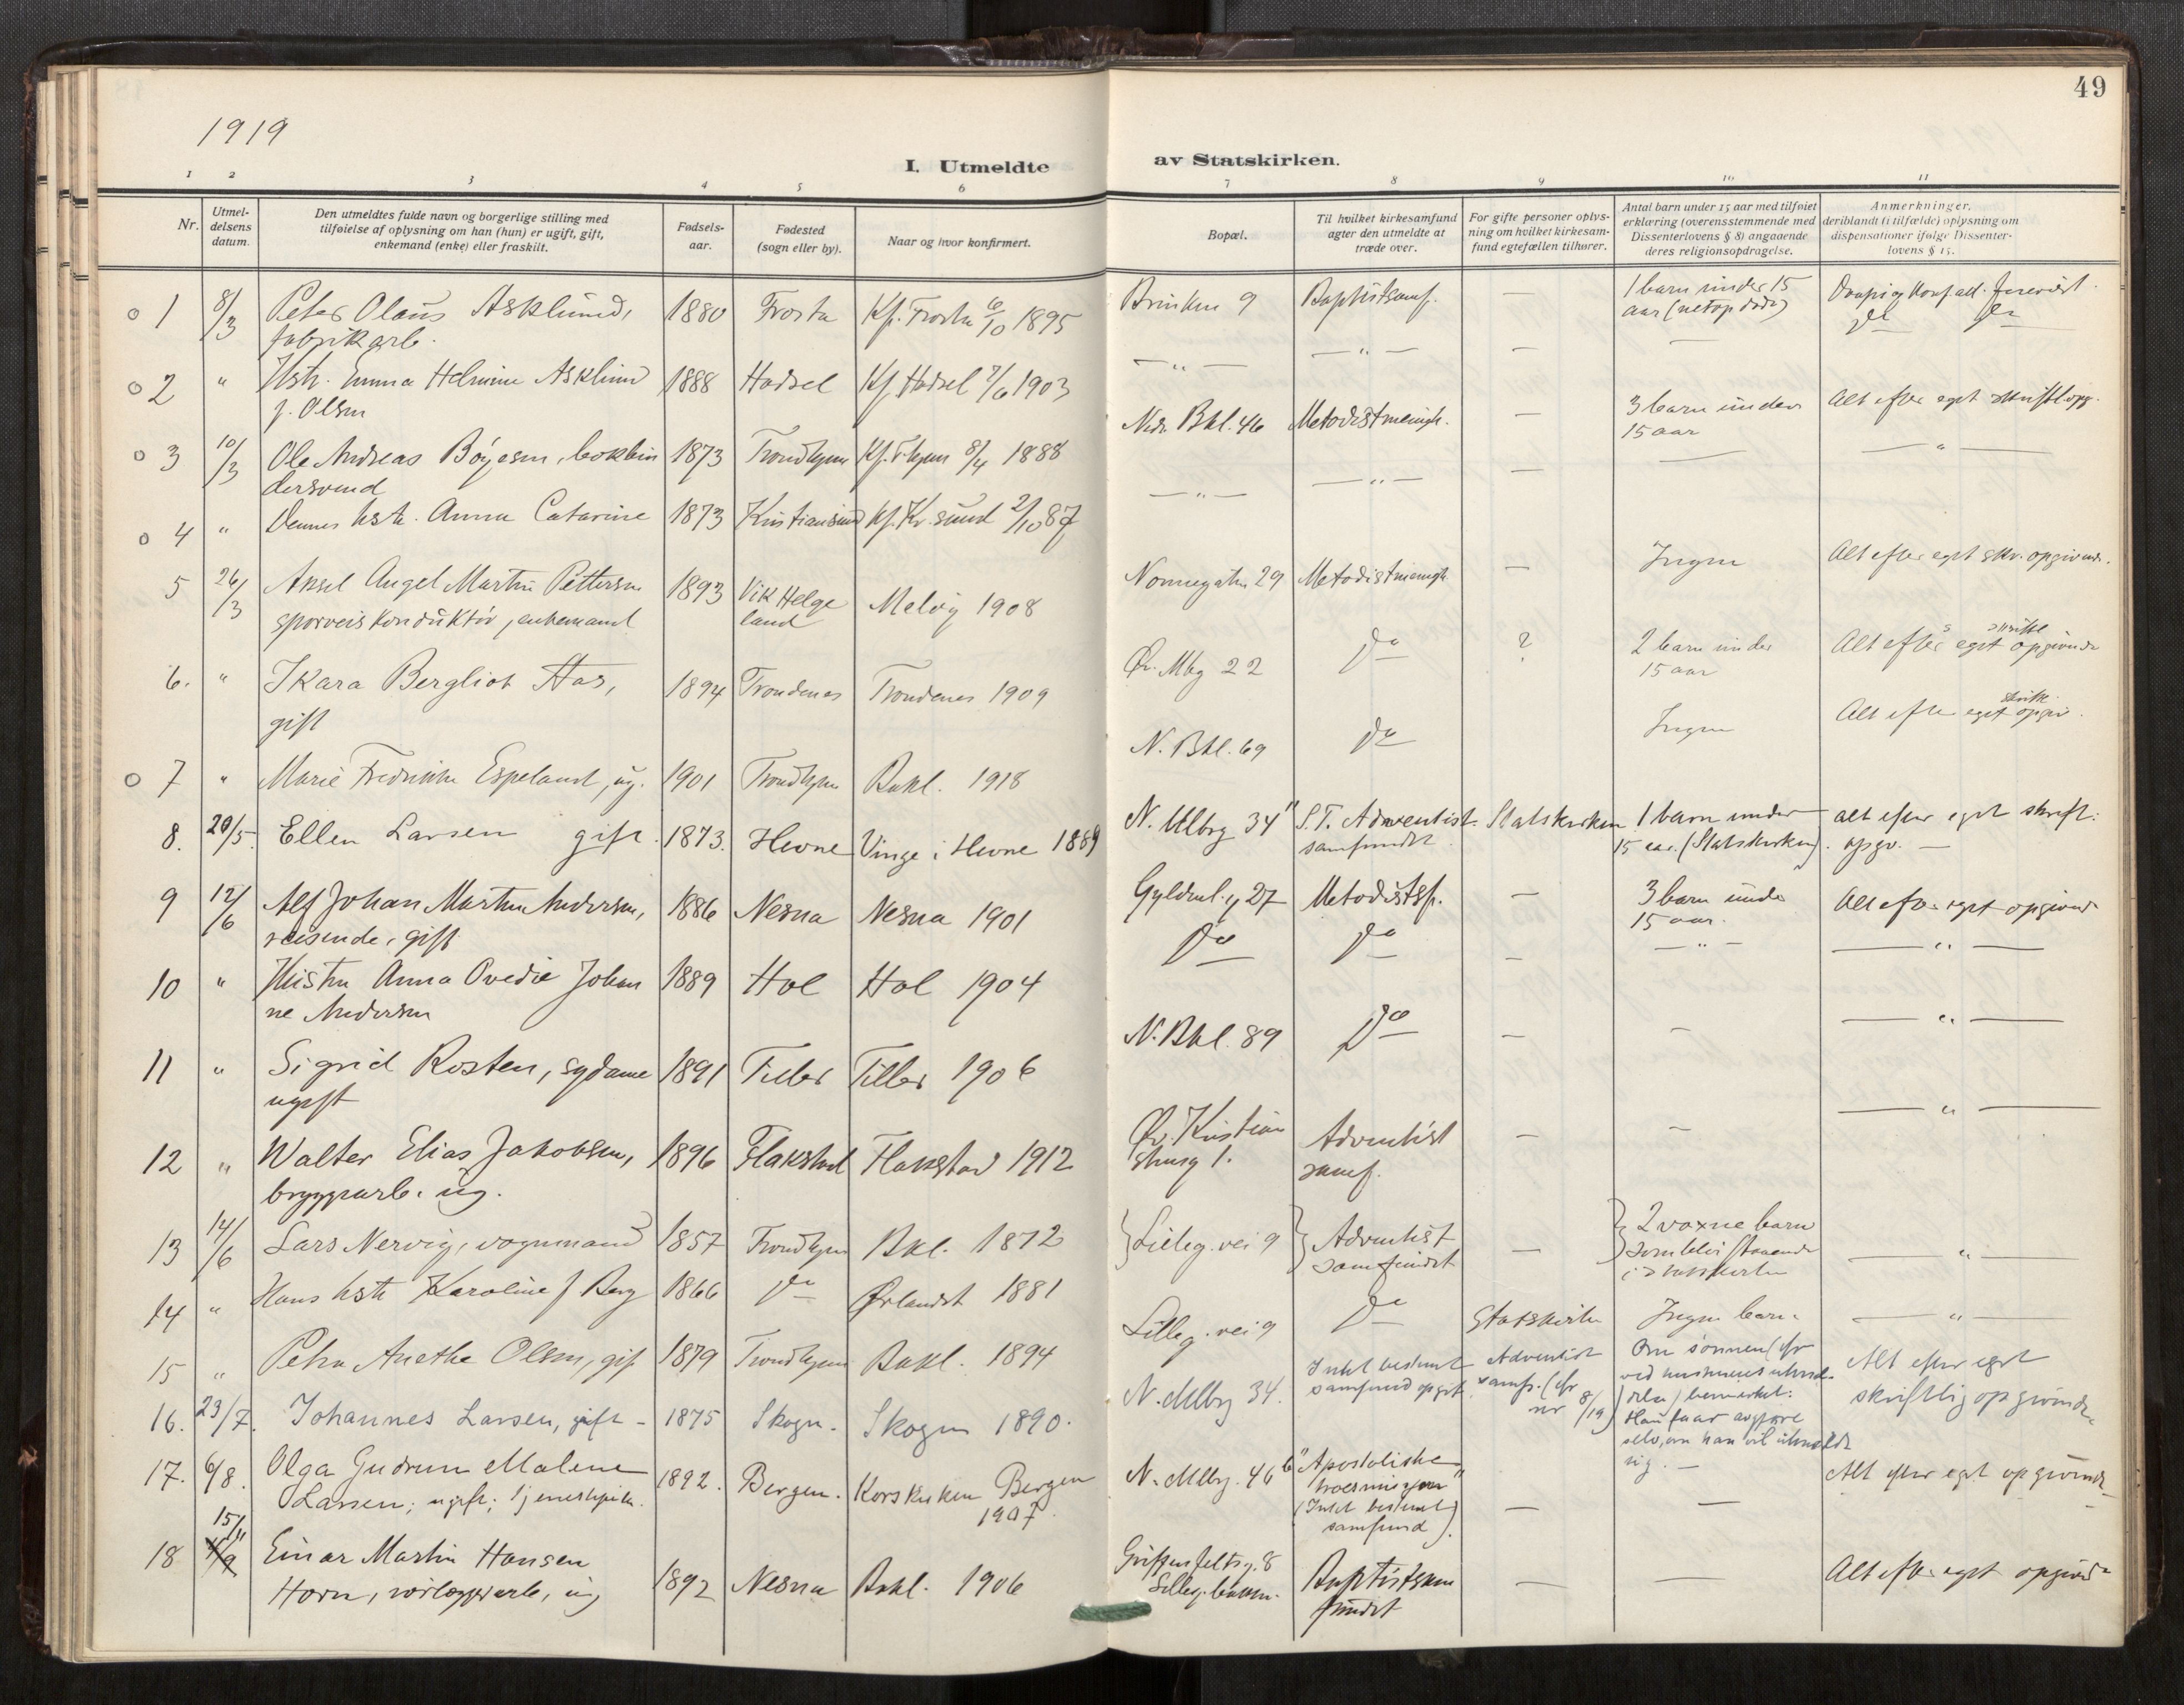 49
1919
I. Utmeldte av Statskirken.
1 2 3 4 5 6 7 8 9 10 11
Nr.
Utmel-
delsens
datum.
Den utmeldtes fulde navn og borgerlige stilling med
tilføielse af oplysning om han (hun) er ugift, gift,
enkemand (enke) eller fraskilt.
Fødsels-
aar.
Fødested
(sogn eller by).
Naar og hvor konfirmert.
Bopæl.
Til hvilket kirkesamfund
agter den utmeldte at
træde over.
For gifte personer oplys-
ning om hvilket kirkesam-
fund egtefællen tilhører.
Antal barn under 15 aar med tilføiet
erklæring (overensstemmende med
Dissenterlovens § 8) angaaende
deres religionsopdragelse.
Anmerkninger,
deriblandt (i tilfælde) oplysning om
dispensationer ifølge Dissenter-
lovens § 15.
o 1 8/3 Peter Olaus Asklund, 1880 Frosta Kf. Frosta 6/10 1895 Brinken 9 Baptistsamf. — 1 barn under 15
fabrikarb. aar (netop død)
o 2 " Hstr. Emma Helmine Asklund 1888 Hadsel Kf. Hadsel 7/6 1903 — " — — " — — —
f. Olsen
o 3 10/3 Ole Andreas Böyesen, bokbin 1873 Trondhjem Kf. T.hjem 8/4 1888 Nedr. Bkl. 46 Metodistmenigh. — 3 barn under Alt efter eget skriftl. opg.
dersvend 15 aar
o 4 " Dennes hstr. Anna Catarine 1873 Kristiansund Kf. Kr.sund 2/10 87 — " — — " — — — — " —
5 26/3 Aksel Angel Martin Pettersen 1893 Vik Helge Melvig 1908 Nonnegaten 29 Metodistmenigh — Ingen Alt efter eget skr. opgivende.
sporveiskonduktör, enkemand land
6. " Ikara Bergliot Aas, 1894 Trondenes Trondenes 1909 Øv. Mbg 22 Do ? 2 barn under Alt efter eget skriftl opgivende
gift 15 aar
o 7 " Marie Fredrikke Espeland, ug. 1901 Trondhjem Bakl. 1918 N. Bkl. 69 Do Ingen Alt efter eget skriftl. opgiv.
8. 20/5. Ellen Larsen gift. 1873. Hevne Vinge i Hevne 1889 N. Mlbrg 34" S.T. Adventist- Statskirken 1 barn under alt efter eget skrift:
samfundet 15 aar. (Statskirken). opgv. —
9 12/6 Alf Johan Martin Andersen, 1886 Nesna Nesna 1901 Gyldenl. g 27 Metodistsf. — 3 barn under Alt efter eget opgivend
reisende, gift 15 aar.
10 " Hustru Anna Ovedie Johan 1889 Hol Hol 1904 Do Do — — " — — " —
ne Andersen
11 " Sigrid Rosten, sydame 1891 Tiller Tiller 1906 N. Bkl. 89 Do — — — " —
ugift
12 " Walter Elias Jakobsen, 1896 Flakstad Flakstad 1912 Øv. Kristian Adventist — — — " —
bryggearb. ug. stensg 1. samf.
13 14/6 Lars Nervig, vognmand 1857 Trondhjem Bkl. 1872 Lilleg. vei 9 Adventist — 2 voxne barn — " —
samfundet som blir staaende
i statskirken
14 " Hans hstr Karoline f Berg 1866 Do Ørlandet 1881
15 " Petra Anethe Olsen, gift 1879 Trondhjem Bakl. 1894 Lilleg. vei 9 Do Statskirken Ingen barn. — " —
16. 23/7. Johannes Larsen, gift - 1875 Skogn. Skogn 1890. N. Mlbrg 34. Intet bestemt Adventist Om sönnen (cfr Alt efter eget
samfund opgit. samf. (cfr ved hustruens utmel- skriftlig opgivende.
nr 8/19) delse) bemerket:
Han faar avgjøre
selv, om han vil utmelde
sig. —
17. 6/8. Olga Gudrun Malene 1892. Bergen. Korskirken Bergen N. Mlbg. 46b "Apostoliske — — Alt efter eget opgivende
Larsen; ugift; tjenestepike. 1907. troesmisjon"
(Intet bestemt
samfund).
18 15/11 Einar Martin Hansen 1892 Nesna Bakl. 1906 Griffenfeltsg. 8 Baptistsam — — Alt efter eget opgivende
Horn, ug Lilleg. bakken. fundet